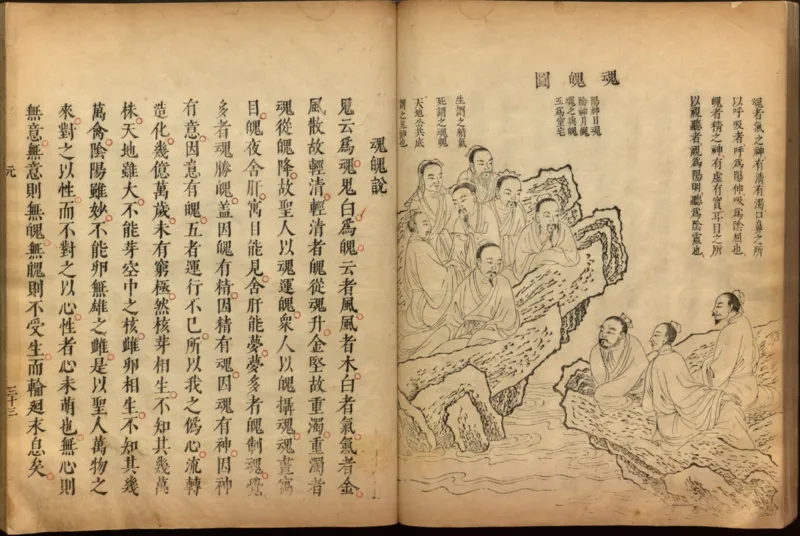 魂者氣之神有清有濁口鼻之所
以呼吸者呼爲陽伸吸爲陰屈也
魄者精之神有虛有實耳目之所
以視聽者視爲陽明聽爲陰靈也
魂魄圖
陽神日魂
陰神月魄
魂之與魄
互爲室宅
生謂之精氣
死謂之魂魄
天地公共底
謂之鬼神也
魂魄說
鬼云爲魂鬼白爲魄云者風風者木白者氣氣者金
風散故輕清輕清者魄從魂升金堅故重濁重濁者
魂從魄降故聖人以魂運魄衆人以魄攝魂魂晝寓
目魄夜舍肝寓目能見舍肝能夢夢多者魄制魂覺
多者魂勝魄蓋因魄有精因精有魂因魂有神因神
有意因意有魄五者運行不已所以我之僞心流轉
造化幾億萬歲未有窮極然核芽相生不知其幾萬
株天地雖大不能芽空中之核雌卵相生不知其幾
萬禽陰陽雖妙不能卵無雄之雌是以聖人萬物之
來對之以性而不對之以心性者心未萌也無心則
無意無意則無魄無魄則不受生而輪廻未息矣
元
三十三